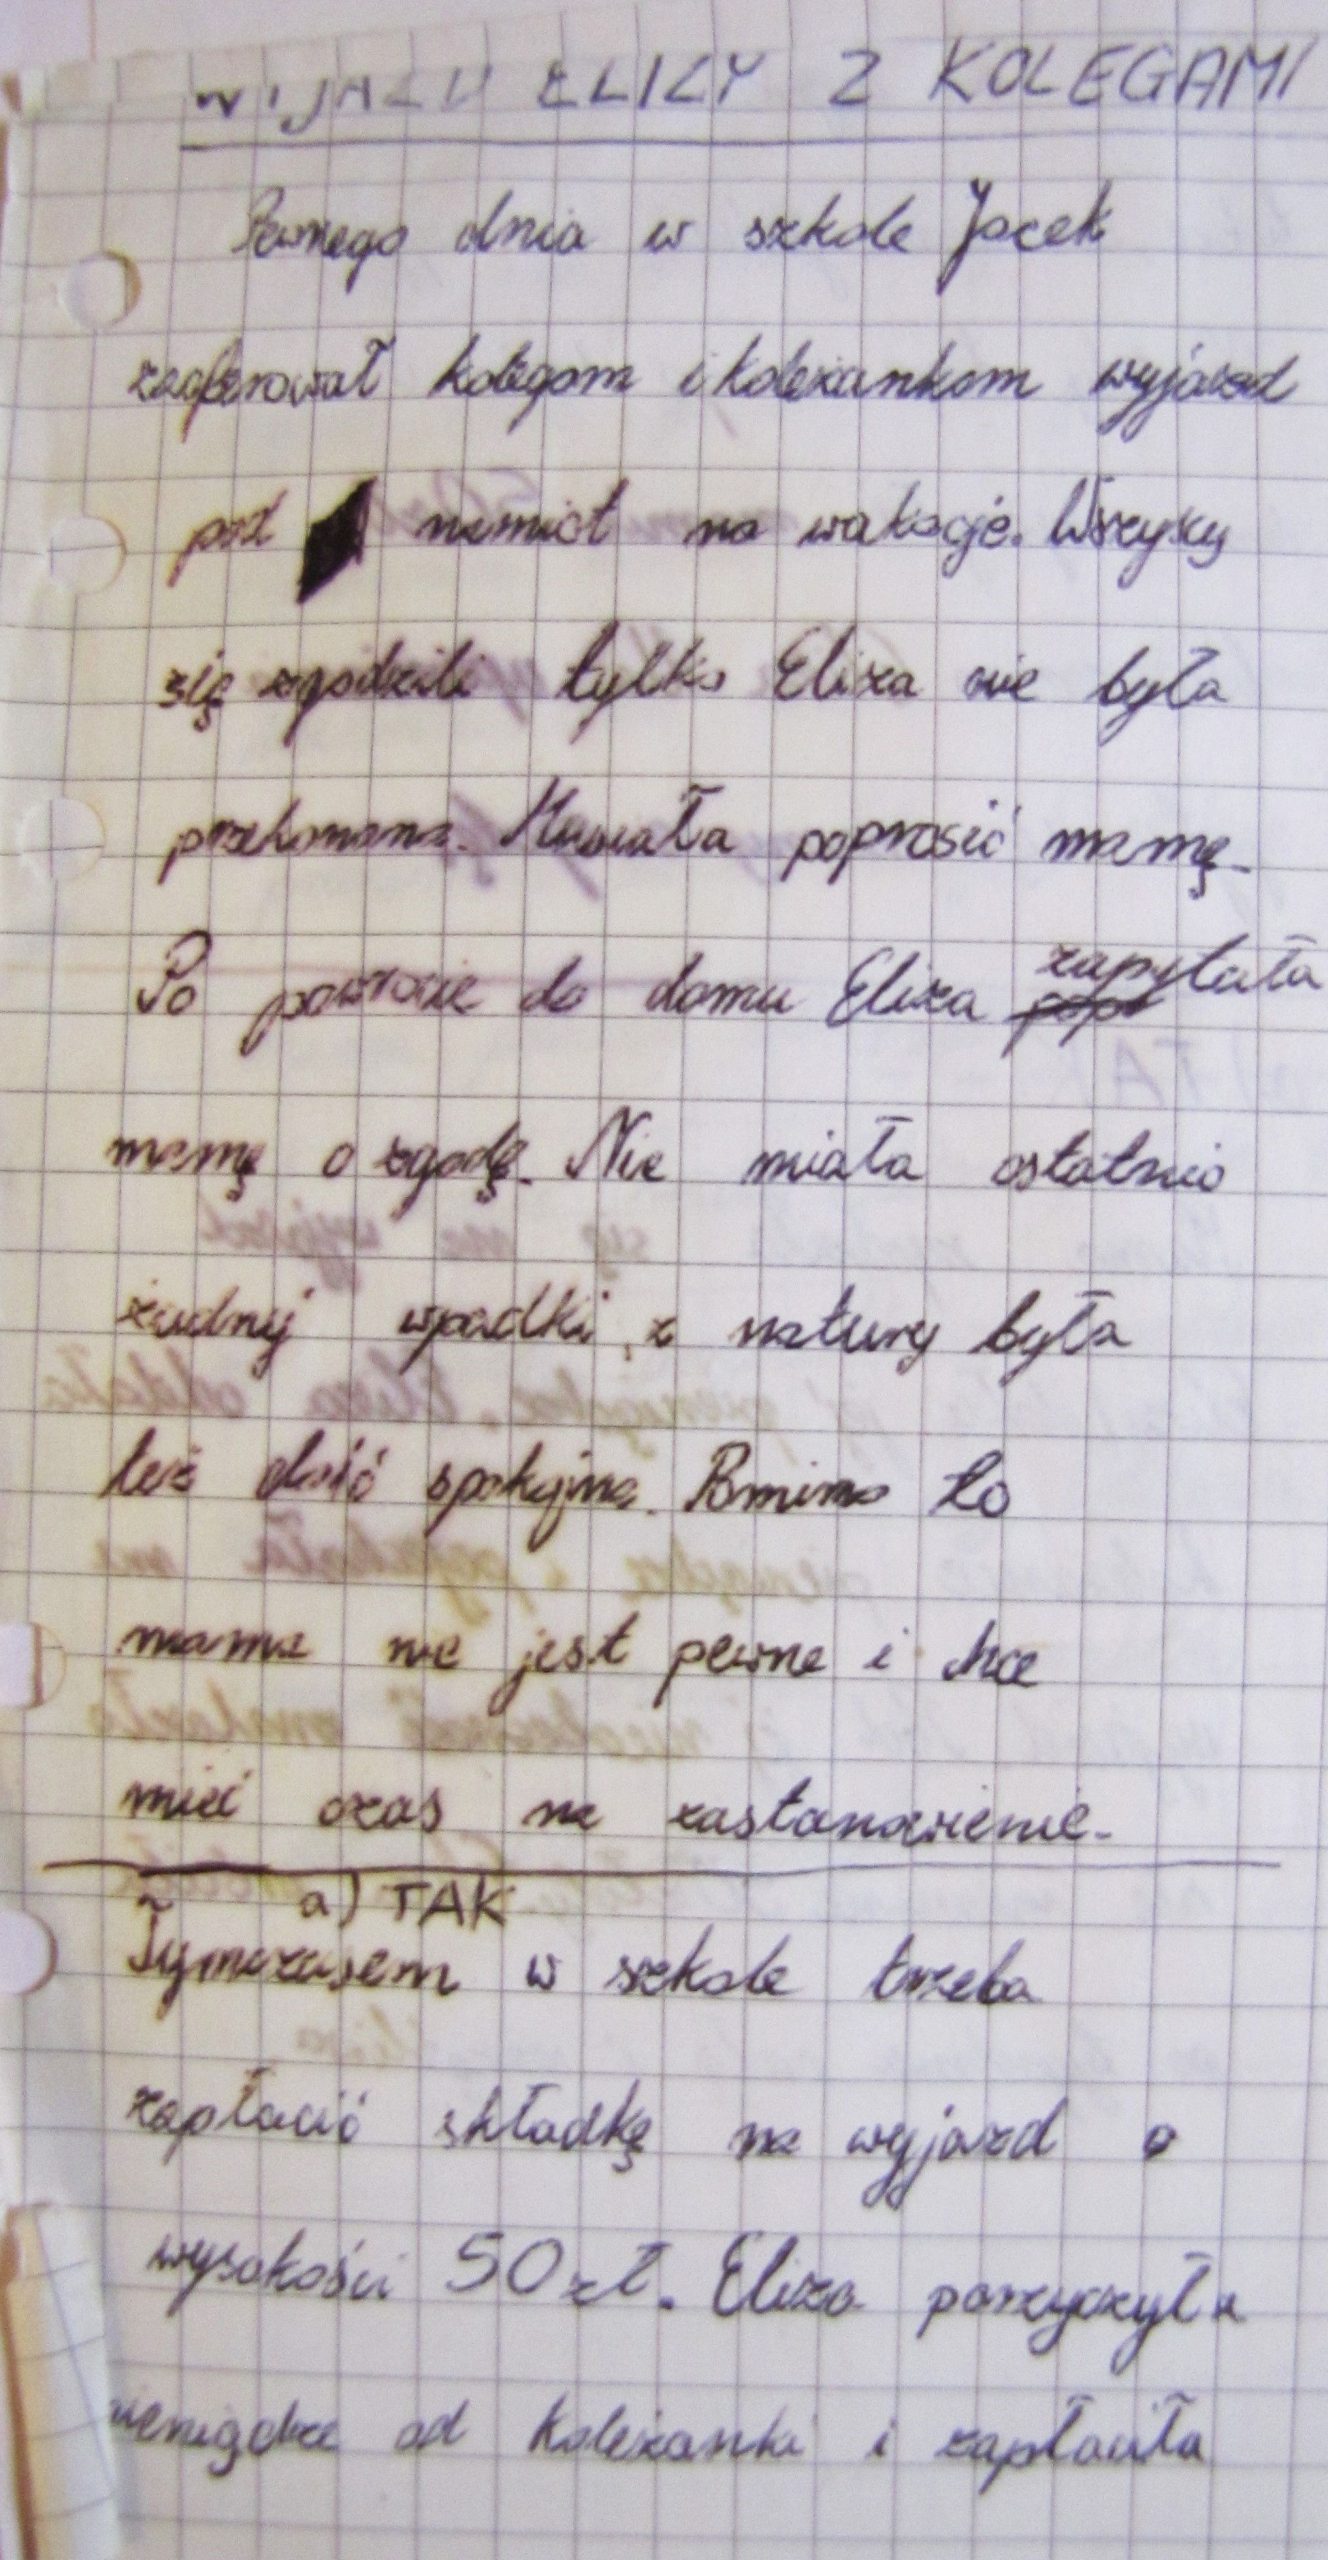 WYJAZD ELIZY Z KOLEGAMI
Pewnego dnia w szkole Jacek
zaoferował kolegom i koleżankom wyjazd
pod namiot na wakacje. Wszyscy
się zgodzili tylko Eliza nie była
przekonana. Musiała poprosić mamę.
Po powrocie do domu Eliza zapytała
mamę o zgodę. Nie miała ostatnio
żadnej wpadki, z natury była
też dość spokojna. Pomimo to
mama nie jest pewna i chce
mieć czas na zastanowienie.
a) TAK
Tymczasem w szkole trzeba
zapłacić składkę na wyjazd o
wysokości 50 zł. Eliza pożyczyła
pieniądze od koleżanki i zapłaciła